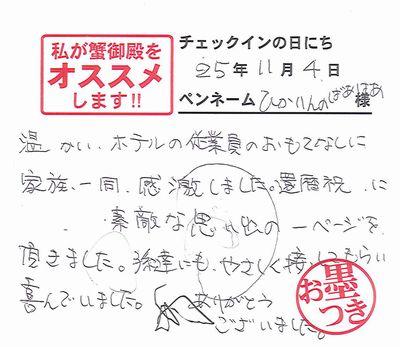 私が蟹御殿を
オススメ
します!!
チェックインの日にち
25年11月4日
ペンネーム ひかりんのばあばあ様
温かい、ホテルの従業員のおもてなしに
家族一同、感激しました。還暦祝に
素敵な思い出の一ページを
頂きました。孫達にも、やさしく接してもらい
喜んでいました。 ありがとう
ございました。
お墨つき